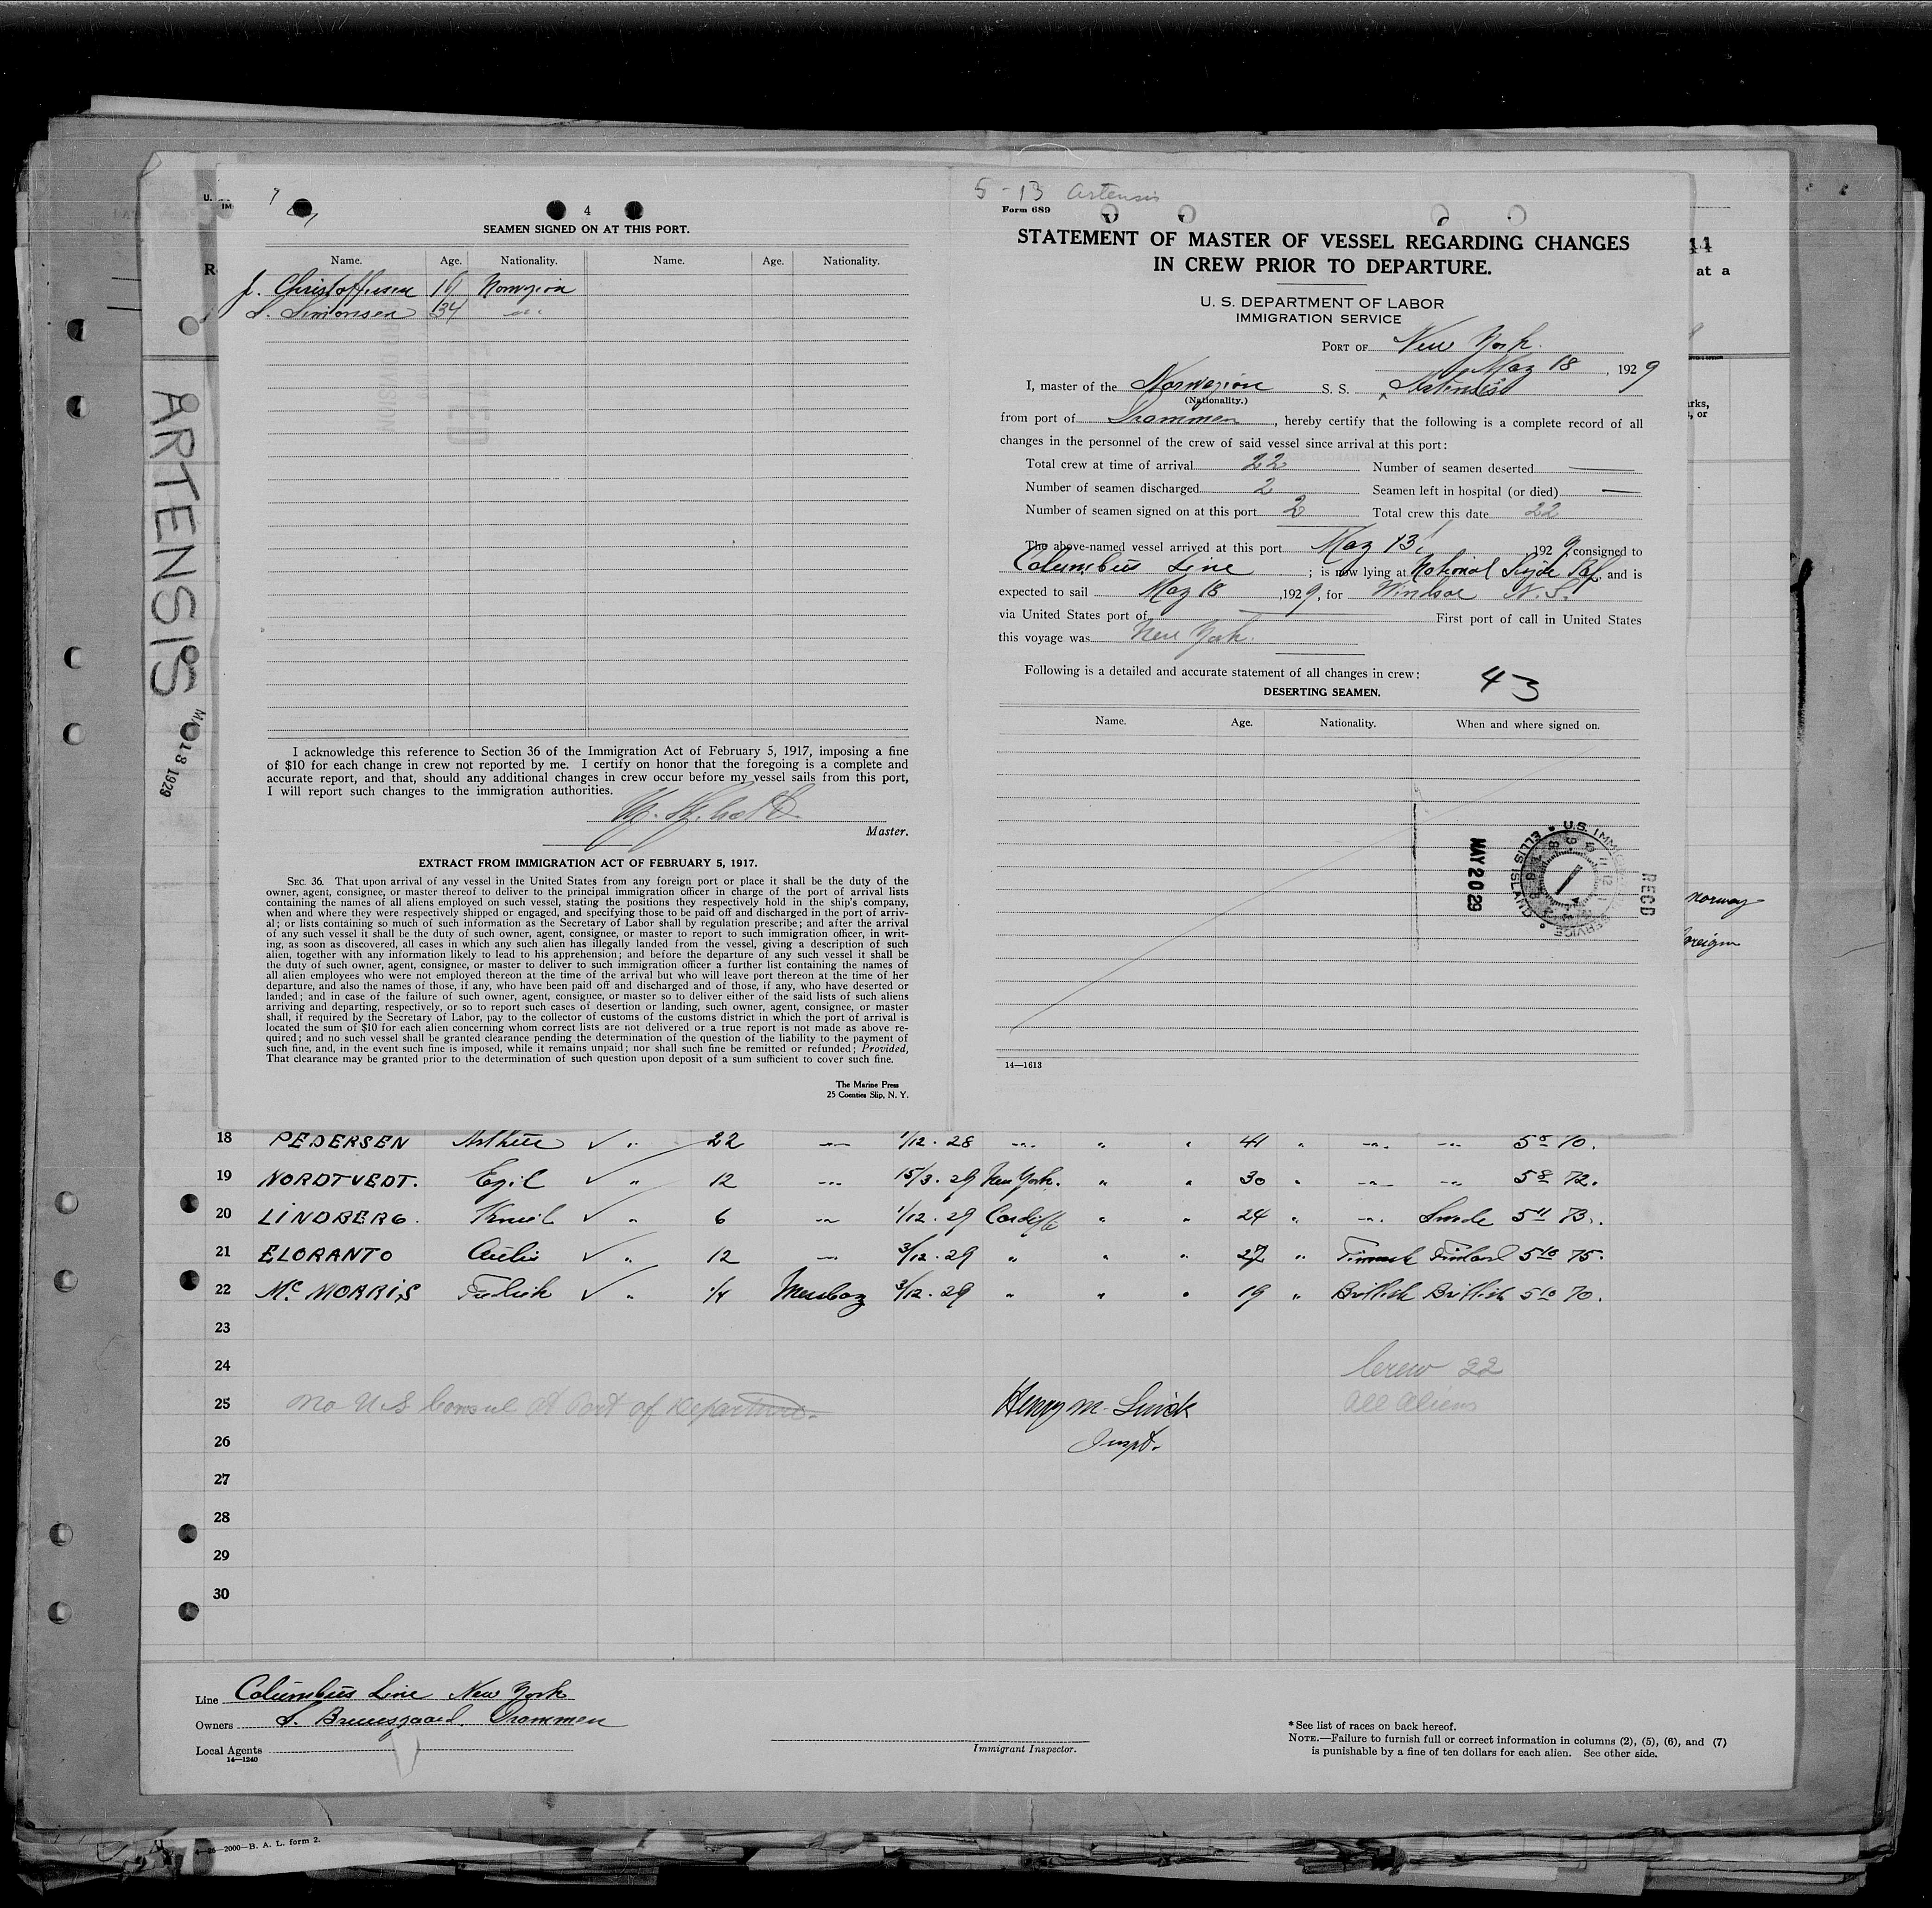 4
SEAMEN SIGNED ON AT THIS PORT.
Name. Age. Nationality. Name. Age. Nationality.
J. Christoffersen Norwegian
S. Simonsen 34
I acknowledge this reference to Section 36 of the Immigration Act of February 5, 1917, imposing a fine
of $10 for each change in crew not reported by me. I certify on honor that the foregoing is a complete and
accurate report, and that, should any additional changes in crew occur before my vessel sails from this port,
I will report such changes to the immigration authorities.
Master.
EXTRACT FROM IMMIGRATION ACT OF FEBRUARY 5, 1917.
SEC. 36. That upon arrival of any vessel in the United States from any foreign port or place it shall be the duty of the
owner, agent, consignee, or master thereof to deliver to the principal immigration officer in charge of the port of arrival lists
containing the names of all aliens employed on such vessel, stating the positions they respectively hold in the ship's company,
when and where they were respectively shipped or engaged, and specifying those to be paid off and discharged in the port of arriv-
al; or lists containing so much of such information as the Secretary of Labor shall by regulation prescribe; and after the arrival
of any such vessel it shall be the duty of such owner, agent, consignee, or master to report to such immigration officer, in writ-
ing, as soon as discovered, all cases in which any such alien has illegally landed from the vessel, giving a description of such
alien, together with any information likely to lead to his apprehension; and before the departure of any such vessel it shall be
the duty of such owner, agent, consignee, or master to deliver to such immigration officer a further list containing the names of
all alien employees who were not employed thereon at the time of the arrival but who will leave port thereon at the time of her
departure, and also the names of those, if any, who have been paid off and discharged and of those, if any, who have deserted or
landed; and in case of the failure of such owner, agent, consignee, or master so to deliver either of the said lists of such aliens
arriving and departing, respectively, or so to report such cases of desertion or landing, such owner, agent, consignee, or master
shall, if required by the Secretary of Labor, pay to the collector of customs of the customs district in which the port of arrival is
located the sum of $10 for each alien concerning whom correct lists are not delivered or a true report is not made as above re-
quired; and no such vessel shall be granted clearance pending the determination of the question of the liability to the payment of
such fine, and, in the event such fine is imposed, while it remains unpaid; nor shall such fine be remitted or refunded; Provided,
That clearance may be granted prior to the determination of such question upon deposit of a sum sufficient to cover such fine.
The Marine Press
25 Coenties Slip, N. Y.
ARTENSIS
MAY 18 1929
5-13 Artensis
Form 689
STATEMENT OF MASTER OF VESSEL REGARDING CHANGES
IN CREW PRIOR TO DEPARTURE.
U. S. DEPARTMENT OF LABOR
IMMIGRATION SERVICE
PORT OF New York.
May 18, 1929
I, master of the Norwegian S. S. Artensis
(Nationality.)
from port of Drammen, hereby certify that the following is a complete record of all
changes in the personnel of the crew of said vessel since arrival at this port:
Total crew at time of arrival 22 Number of seamen deserted —
Number of seamen discharged 2 Seamen left in hospital (or died) —
Number of seamen signed on at this port 2 Total crew this date 22
The above-named vessel arrived at this port May 13, 1929, consigned to
Columbus Line; is now lying at National, and is
expected to sail May 18, 1929, for Windsor N.S.
via United States port of — First port of call in United States
this voyage was New York.
Following is a detailed and accurate statement of all changes in crew:
43
DESERTING SEAMEN.
Name. Age. Nationality. When and where signed on.
MAY 20 29
U.S. IMMIGRATION SERVICE ELLIS ISLAND
RECD
14—1613
44
at a
Norway
foreign
18 PEDERSEN Arthur ✓ " 22 1/12.28 " " 41 " 5 8 70.
19 NORDTVEDT. Egil ✓ " 12 15/3.29 New York. " " 30 " 5 8 72.
20 LINDBERG. ✓ " 6 1/12.29 Cardiff " " 24 " Swede 5 11 73.
21 ELORANTO ✓ " 12 3/12.29 " " " 27 " Finland 5 10 75.
22 Mc MORRIS ✓ " 1/4 Messboy 3/12.29 " " " 19 " British British 5 10 70.
23
24 Crew 22
25 No U S Consul at Port of Departure. Henry M. All Aliens
26 Inspt.
27
28
29
30
Line Columbus Line New York
Owners S. Bruusgaard, Drammen
Local Agents
14—1240
Immigrant Inspector.
* See list of races on back hereof.
NOTE.—Failure to furnish full or correct information in columns (2), (5), (6), and (7)
is punishable by a fine of ten dollars for each alien. See other side.
2000—B. A. L. form 2.